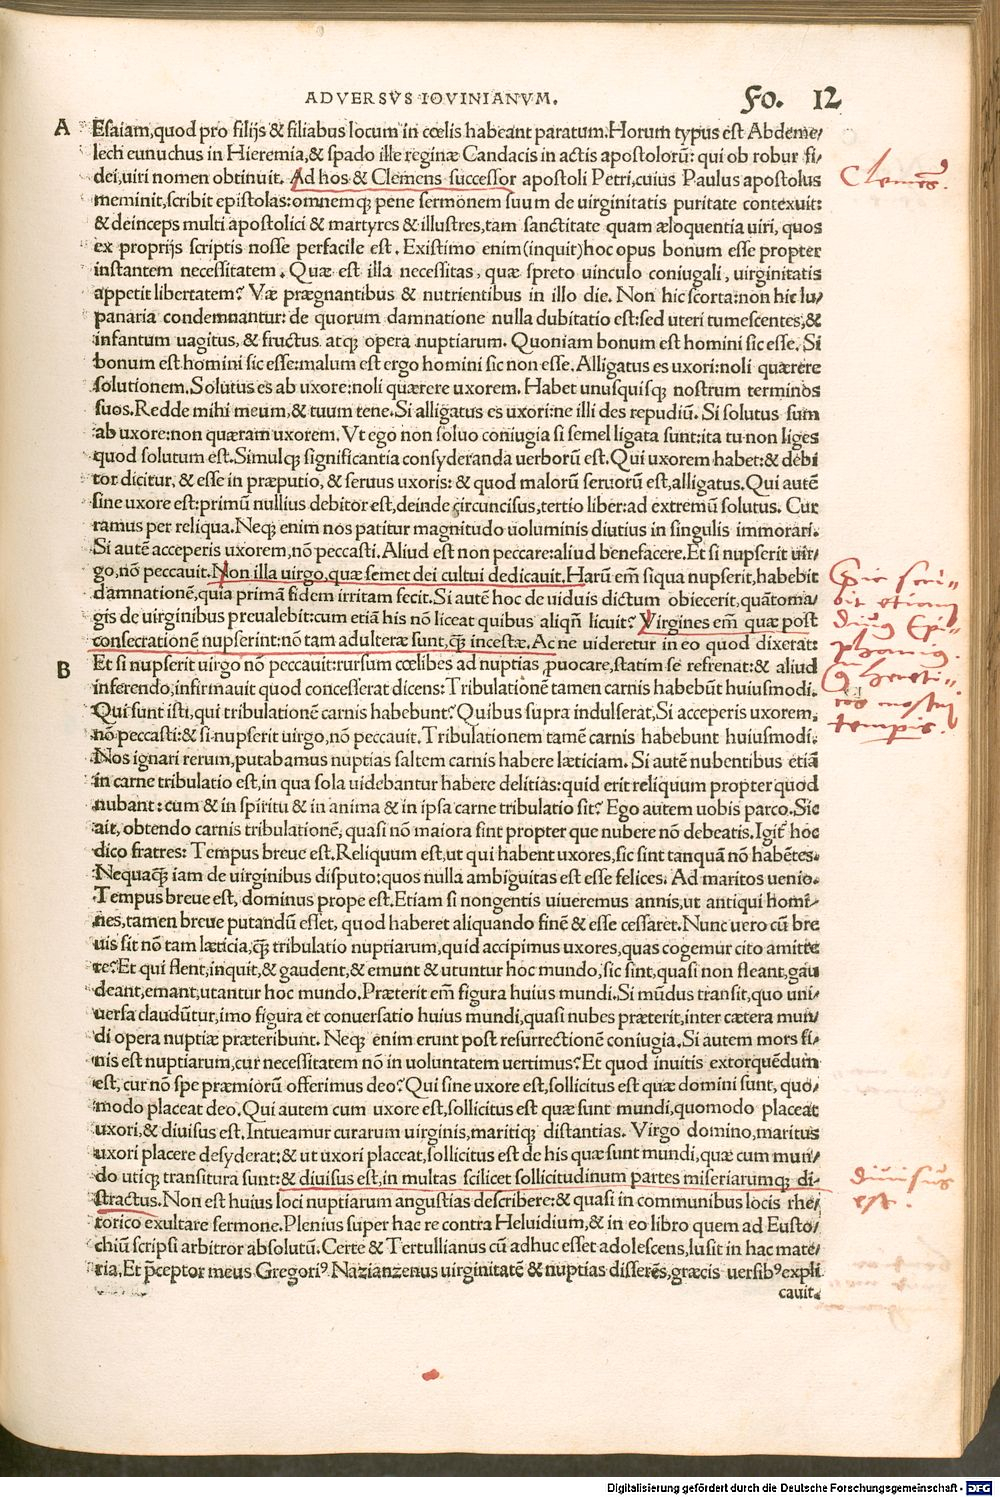 ADVERSVS IOVINIANVM. Fo. 12
A
Esaiam,quod pro filijs & filiabus locum in cœlis habeant paratum.Horum typus est Abdeme/
lech eunuchus in Hieremia,& spado ille reginæ Candacis in actis apostolorū: qui ob robur fi/
dei,uiri nomen obtinuit. Ad hos & Clemens successor apostoli Petri,cuius Paulus apostolus
meminit,scribit epistolas:omnemqꝫ pene sermonem suum de uirginitatis puritate contexuit:
& deinceps multi apostolici & martyres & illustres,tam sanctitate quam æloquentia uiri, quos
ex proprijs scriptis nosse perfacile est. Existimo enim(inquit)hoc opus bonum esse propter
instantem necessitatem. Quæ est illa necessitas, quæ spreto uinculo coniugali, uirginitatis
appetit libertatem? Væ prægnantibus & nutrientibus in illo die. Non hic scorta:non hic lu/
panaria condemnantur: de quorum damnatione nulla dubitatio est:sed uteri tumescentes,&
infantum uagitus, & fructus atqꝫ opera nuptiarum. Quoniam bonum est homini sic esse. Si
bonum est homini sic esse:malum est ergo homini sic non esse. Alligatus es uxori:noli quærere
solutionem. Solutus es ab uxore:noli quærere uxorem. Habet unusquisqꝫ nostrum terminos
suos.Redde mihi meum,& tuum tene.Si alligatus es uxori:ne illi des repudiū. Si solutus sum
ab uxore:non quæram uxorem. Vt ego non soluo coniugia si semel ligata sunt:ita tu non liges
quod solutum est.Simulqꝫ significantia consyderanda uerborū est.Qui uxorem habet:& debi
tor dicitur, & esse in præputio, & seruus uxoris: & quod malorū seruorū est,alligatus.Qui autē
sine uxore est:primū nullius debitor est,deinde circuncisus,tertio liber:ad extremū solutus. Cur
ramus per reliqua.Neqꝫ enim nos patitur magnitudo uoluminis diutius in singulis immorari.
Si autē acceperis uxorem,nō peccasti.Aliud est non peccare:aliud benefacere.Et si nupserit uir/
go,nō peccauit.Non illa uirgo,quæ semet dei cultui dedicauit.Harū em̄ siqua nupserit,habebit
damnationē,quia primā fidem irritam fecit.Si autē hoc de uiduis dictum obiecerit,quāto ma/
gis de uirginibus preualebit:cum etiā his nō liceat quibus aliqn̄ licuit? Virgines em̄ quæ post
consecrationē nupserint:nō tam adulteræ sunt,qꝫ̄ incestæ. Ac ne uideretur in eo quod dixerat:
B
Et si nupserit uirgo nō peccauit:rursum cœlibes ad nuptias ꝓuocare,statim se refrenat:& aliud
inferendo,infirmauit quod concesserat dicens:Tribulationē tamen carnis habebūt huiusmodi.
Qui sunt isti,qui tribulationē carnis habebunt? Quibus supra indulserat,Si acceperis uxorem,
nō peccasti:& si nupserit uirgo,nō peccauit.Tribulationem tamē carnis habebunt huiusmodi.
Nos ignari rerum,putabamus nuptias saltem carnis habere læticiam. Si autē nubentibus etiā
in carne tribulatio est,in qua sola uidebantur habere delitias:quid erit reliquum propter quod
nubant: cum & in spiritu & in anima & in ipsa carne tribulatio sit? Ego autem uobis parco.Sic
ait, obtendo carnis tribulationē, quasi nō maiora sint propter que nubere nō debeatis.Igiť hoc
dico fratres: Tempus breue est.Reliquum est,ut qui habent uxores,sic sint tanquā nō habētes.
Nequaqꝫ̄ iam de uirginibus disputo:quos nulla ambiguitas est esse felices. Ad maritos uenio.
Tempus breue est, dominus prope est.Etiam si nongentis uiueremus annis,ut antiqui homi/
nes,tamen breue putandū esset, quod haberet aliquando finē & esse cessaret.Nunc uero cū bre
uis sit nō tam læticia,qꝫ̄ tribulatio nuptiarum,quid accipimus uxores,quas cogemur cito amitte
re?Et qui flent,inquit,& gaudent,& emunt & utuntur hoc mundo,sic sint,quasi non fleant,gau
deant,emant,utantur hoc mundo.Præterit em̄ figura huius mundi.Si mūdus transit,quo uni/
uersa claudūtur,imo figura et conuersatio huius mundi,quasi nubes præterit,inter cætera mun/
di opera nuptiæ præteribunt. Neqꝫ enim erunt post resurrectionē coniugia.Si autem mors fi/
nis est nuptiarum,cur necessitatem nō in uoluntatem uertimus?Et quod inuitis extorquēdum
est, cur nō spe præmiorū offerimus deo?Qui sine uxore est,sollicitus est quæ domini sunt, quo/
modo placeat deo.Qui autem cum uxore est,sollicitus est quæ sunt mundi,quomodo placeat
uxori,& diuisus est.Intueamur curarum uirginis,maritiqꝫ distantias. Virgo domino,maritus
uxori placere desyderat:& ut uxori placeat,sollicitus est de his quæ sunt mundi,quæ cum mun/
do utiqꝫ transitura sunt:& diuisus est,in multas scilicet sollicitudinum partes miseriarumqꝫ di/
stractus.Non est huius loci nuptiarum angustias describere:& quasi in communibus locis rhe/
torico exultare sermone.Plenius super hac re contra Heluidium,& in eo libro quem ad Eusto/
chiū scripsi arbitror absolutū. Certe & Tertullianus cū adhuc esset adolescens,lusit in hac mate/
ria.Et p̄ceptor meus Gregoriꝰ Nazianzenus uirginitatē & nuptias disserēs,græcis uersibꝰ expli
cauit.
Clemēs.
Sic scri=
bit etiam
diuus Epi=
phanius.
hereti=
cos nostri
temporis.
diuisus
est.
Digitalisierung gefördert durch die Deutsche Forschungsgemeinschaft - DFG